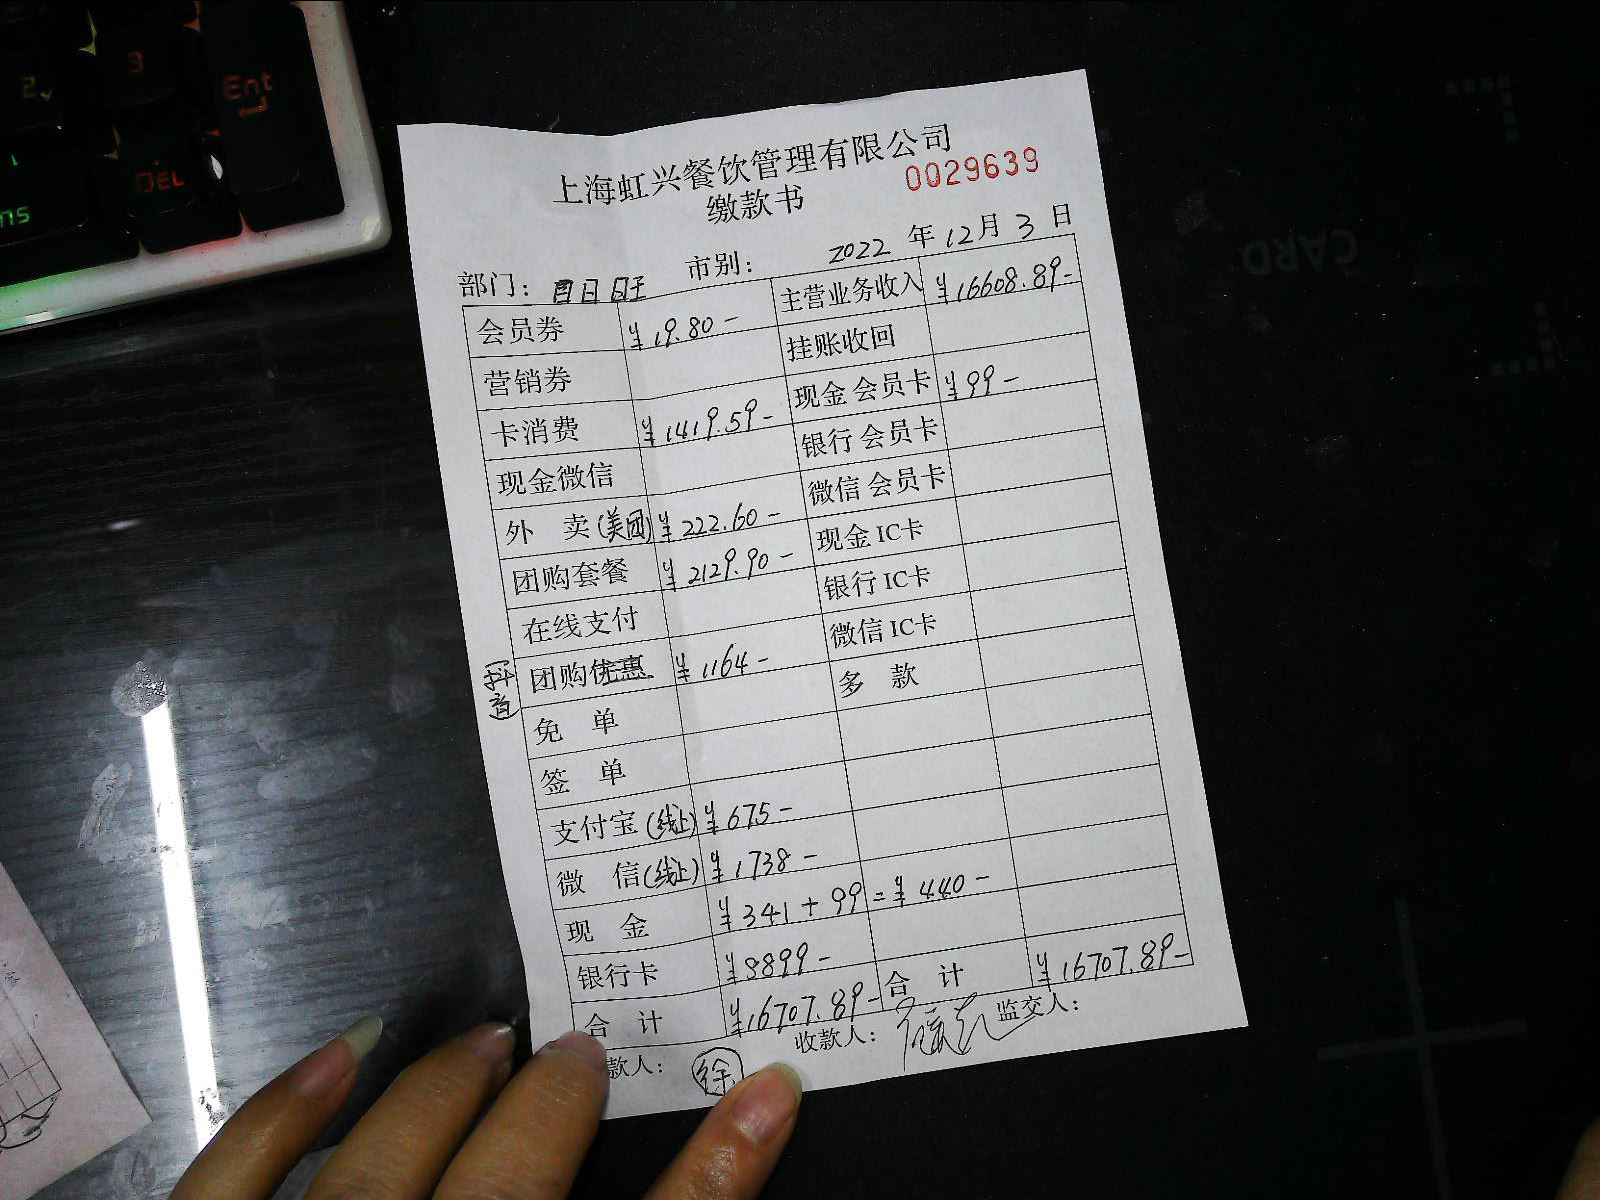 2
3
Ent
DEL
ns
CARD
上海虹兴餐饮管理有限公司
0029639
缴款书
部门： 市别： 2022 年 12 月 3 日
会员券 ¥19.80- 主营业务收入 ¥16608.89-
营销券 挂账收回
卡消费 ¥1419.59- 现金 会员卡 ¥99-
现金微信 银行 会员卡
外 卖(美团) ¥222.60- 微信 会员卡
团购套餐 ¥2129.90- 现金 IC卡
在线支付 银行 IC卡
抖音 团购优惠 ¥1164- 微信 IC卡
免 单 多 款
签 单
支付宝(线上) ¥675-
微 信(线上) ¥1738-
现 金 ¥341+99=¥440-
银行卡 ¥8899-
合 计 ¥16707.89- 合 计 ¥16707.89-
款人： 徐 收款人： 监交人：